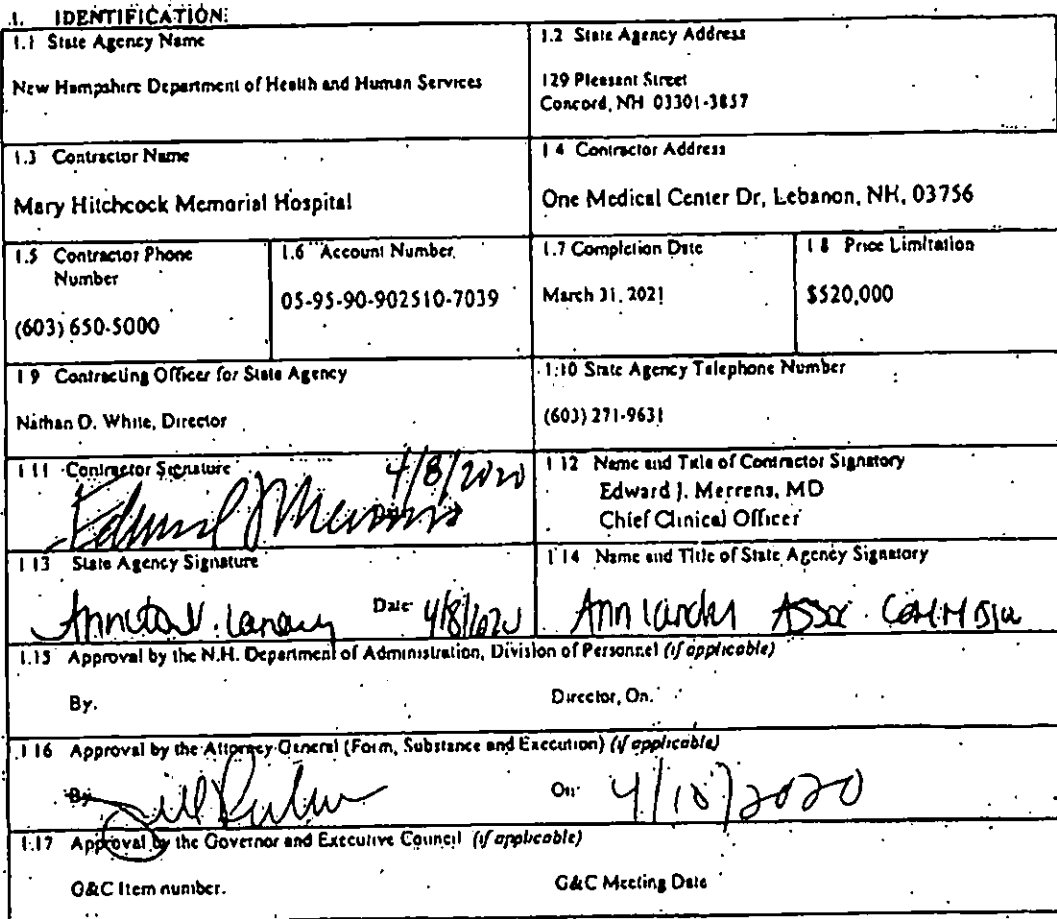 1. IDENTIFICATION:
1.1 State Agency Name
New Hampshire Department of Health and Human Services
1.2 State Agency Address
129 Pleasant Street
Concord, NH 03301-3857
1.3 Contractor Name
Mary Hitchcock Memorial Hospital
1 4 Contractor Address
One Medical Center Dr, Lebanon, NH, 03756
1.5 Contractor Phone
Number
(603) 650-5000
1.6 Account Number
05-95-90-902510-7039
1.7 Completion Date
March 31, 2021
1 8 Price Limitation
$520,000
1 9 Contracting Officer for State Agency
Nathan D. White, Director
1.10 State Agency Telephone Number
(603) 271-9631
1 11 Contractor Signature
4/8/2020
1 12 Name and Title of Contractor Signatory
Edward J. Merrens, MD
Chief Clinical Officer
1 13 State Agency Signature
Date 4/8/2020
1 14 Name and Title of State Agency Signatory
Ann Assoc.
1.15 Approval by the N.H. Department of Administration, Division of Personnel (if applicable)
By.
Director, On.
1 16 Approval by the Attorney General (Form, Substance and Execution) (if applicable)
By
On: 4/10/2020
1.17 Approval by the Governor and Executive Council (if applicable)
G&C Item number.
G&C Meeting Date